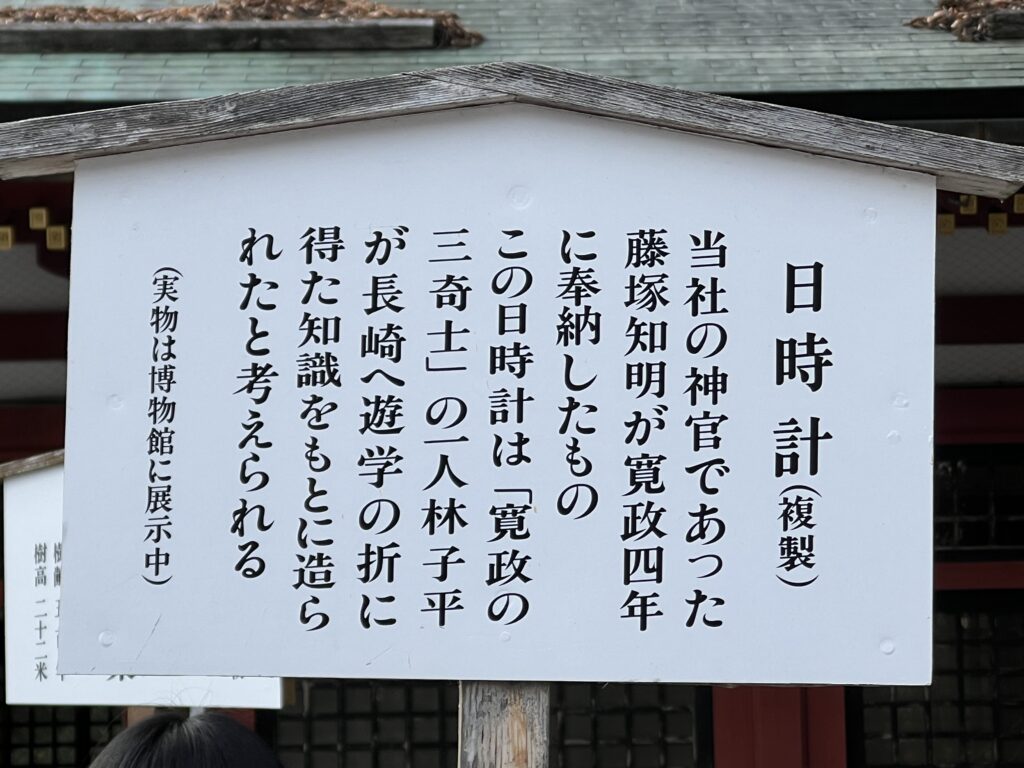 日時計(複製)
当社の神官であった
藤塚知明が寛政四年
に奉納したもの
この日時計は「寛政の
三奇士」の一人林子平
が長崎へ遊学の折に
得た知識をもとに造ら
れたと考えられる
(実物は博物館に展示中)
樹高 二十二米